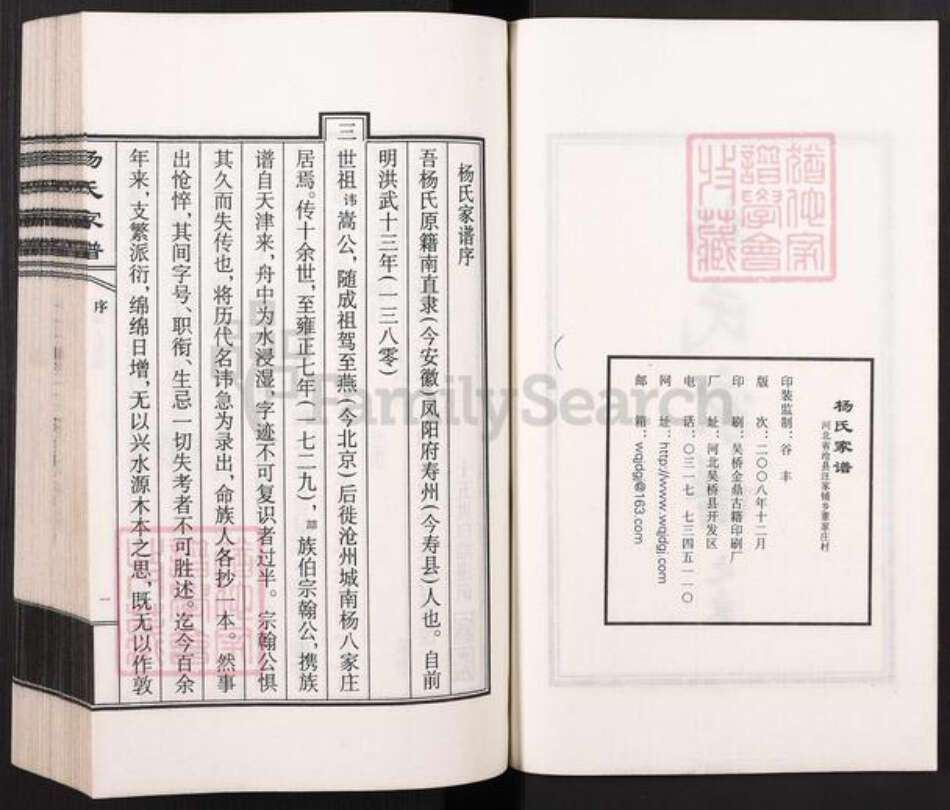 杨氏家谱
河北省沧县汪家铺乡董家庄村
印装监制：谷 丰
版 次：二〇〇八年十二月
印 刷：吴桥金鼎古籍印刷厂
厂 址：河北吴桥县开发区
电 话：〇三一七 七三四五一一〇
网 址：http://www.wqjdgj.com
邮 箱：wqjdgj@163.com
杨氏家谱序
吾杨氏原籍南直隶（今安徽）凤阳府寿州（今寿县）人也。自前
明洪武十三年（一三八零）
三
世祖讳嵩公，随成祖驾至燕（今北京）后徙沧州城南杨八家庄
居焉。传十余世，至雍正七年（一七二九），族伯宗翰公，携族
谱自天津来，舟中为水浸湿，字迹不可复识者过半。宗翰公惧
其久而失传也，将历代名讳急为录出，命族人各抄一本。然事
出怆悴，其间字号、职衔、生忌一切失考者不可胜述。迄今百余
年来，支繁派衍，绵绵日增，无以兴水源木本之思，既无以作敦
杨氏家谱
序
一
FamilySearch